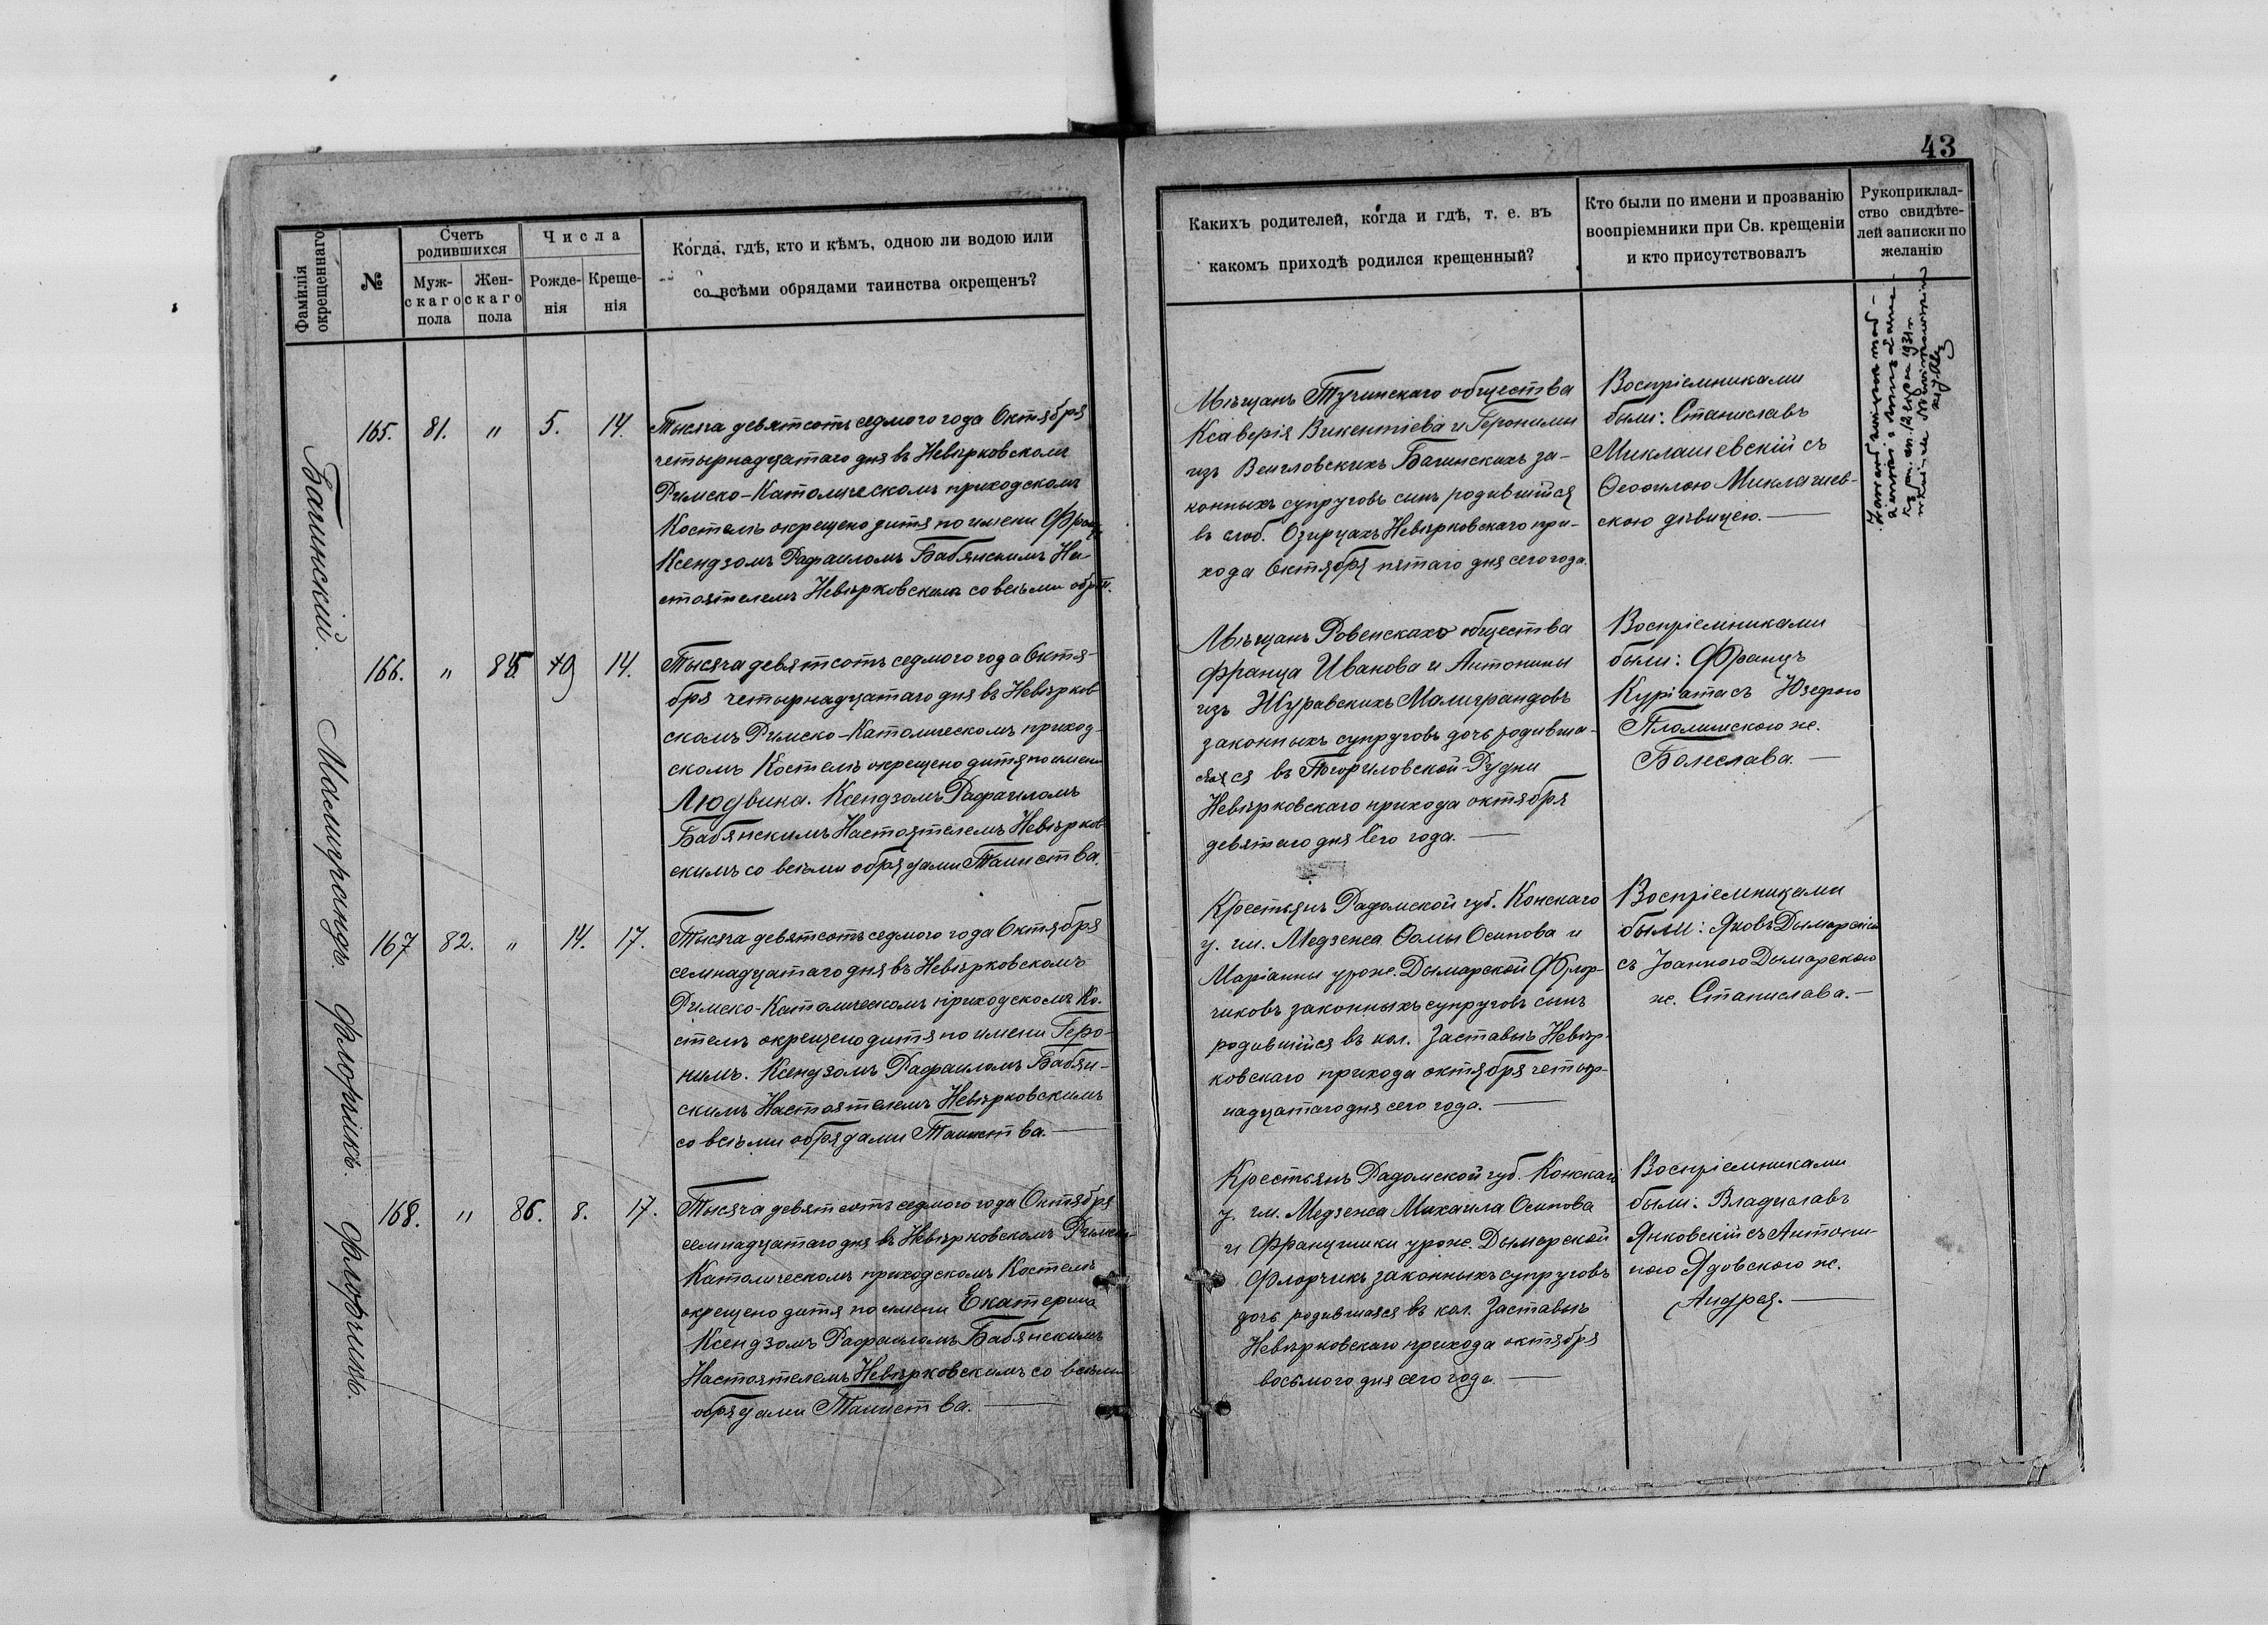 43
Фамилія окрещеннаго
№
Счетъ родившихся
Муж-
скаго
пола
Жен-
скаго
пола
Числа
Рожде-
нія
Креще-
нія
Когда, гдѣ, кто и кѣмъ, одною ли водою или
со всѣми обрядами таинства окрещенъ?
Какихъ родителей, когда и гдѣ, т. е. въ
какомъ приходѣ родился крещенный?
Кто были по имени и прозванію
воспріемники при Св. крещеніи
и кто присутствовалъ
Рукоприклад-
ство свидѣте-
лей записки по
желанію
Багинскій.
165. 81. " 5. 14.
Тысяча девятсотъ седмого года Октября
четырнадцатаго дня въ Невѣрковскомъ
Римско-Католическомъ приходскомъ
Костелѣ окрещено дитя по имени Францъ
Ксендзомъ Рафаиломъ Бабянскимъ На-
стоятелемъ Невѣрковскимъ со всѣми обр. Т.
Мѣщанъ Тучинскаго общества
Ксаверія Викентіева и Геронимы
изъ Венгловскихъ Багинскихъ за-
конныхъ супруговъ сынъ родившійся
въ слоб. Озирцахъ Невѣрковскаго при-
хода Октября пятаго дня сего года.
Воспріемниками
были: Станиславъ
Миклашевскій съ
Ѳеофилою Миклашев-
скою дѣвицею.
Малиграндъ.
166. " 85. 9 14.
Тысяча девятсотъ седмого года Октя-
бря четырнадцатаго дня въ Невѣрков
скомъ Римско-Католическомъ приход-
скомъ Костелѣ окрещено дитя по имени
Людвика. Ксендзомъ Рафаиломъ
Бабянскимъ Настоятелемъ Невѣрков
скимъ со всѣми обрядами Таинства.
Мѣщанъ Ровенскаго общества
Франца Иванова и Антонины
изъ Журавскихъ Малиграндовъ
законныхъ супруговъ дочь родивша-
яся въ Погориловской-Рудни
Невѣрковскаго прихода октября
девятаго дня сего года.
Воспріемниками
были: Францъ
Куріата съ Юзефою
ж.
Болеслава.
Флорчикъ.
167 82. " 14. 17.
Тысяча девятсотъ седмого года Октября
семнадцатаго дня въ Невѣрковскомъ
Римско-Католическомъ приходскомъ Ко-
стелѣ окрещено дитя по имени Геро-
нимъ. Ксендзомъ Рафаиломъ Бабян-
скимъ Настоятелемъ Невѣрковскимъ
со всѣми обрядами Таинства.
Крестьянъ Радомской губ. Конскаго
у. гм. Медзенса Ѳомы Осипова и
Маріанны урож. Дымарской Флор-
чиковъ законныхъ супруговъ сынъ
родившійся въ кол. Заставьѣ Невѣр-
ковскаго прихода октября четыр-
надцатаго дня сего года.
Воспріемниками
были: Яковъ Дымарскій
съ Іоанною Дымарскою
ж. Станислава.
Флорчикъ.
168. " 86. 8. 17.
Тысяча девятсотъ седмого года Октября
семнадцатаго дня въ Невѣрковскомъ Римско-
Католическомъ приходскомъ Костелѣ
окрещено дитя по имени Екатерина
Ксендзомъ Рафаиломъ Бабянскимъ
Настоятелемъ Невѣрковскимъ со всѣми
обрядами Таинства.
Крестьянъ Радомской губ. Конскаго
у. гм. Медзенса Михаила Осипова
и Францишки урож. Дымарской
Флорчикъ законныхъ супруговъ
дочь родившаяся въ кол. Заставьѣ
Невѣрковскаго прихода октября
восьмого дня сего года.
Воспріемниками
были: Владиславъ
Янковскій съ Антони-
ною Ядовскою ж.
Андрея.